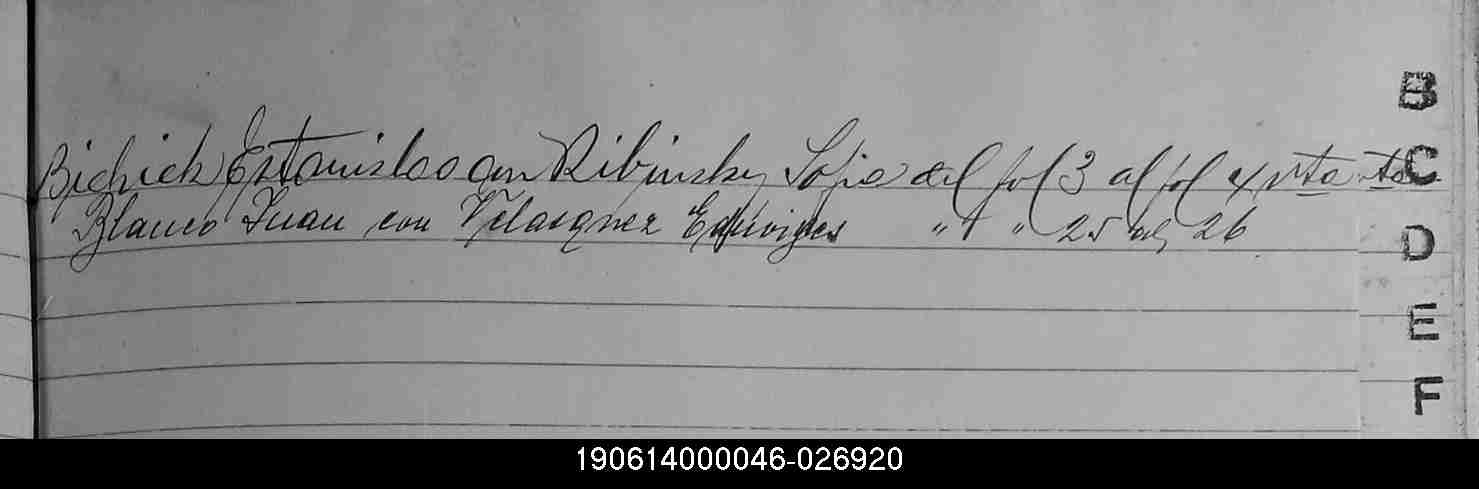 B
Bichick Estanislao con Ribinsky Sofia del fol 3 al fol 4 vta
C
Blanco Juan con Velasquez Eduviges " " 25 al 26
D
E
F
190614000046-026920